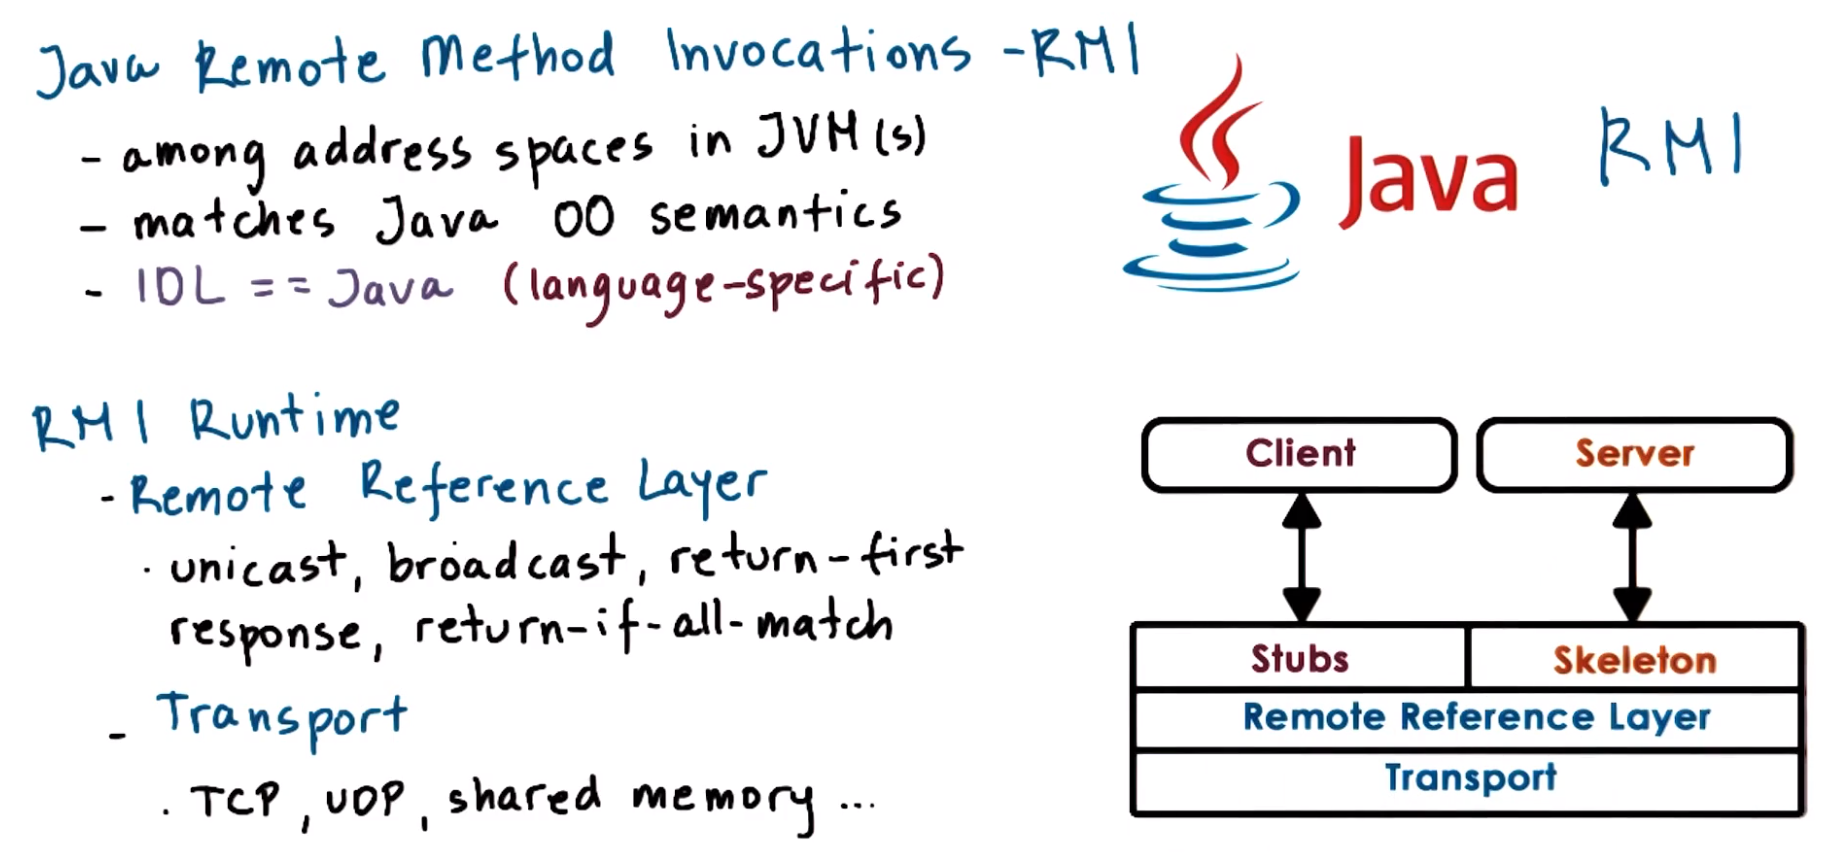 Java Remote Method Invocations - RMI
- among address spaces in JVM(s)
- matches Java OO semantics
- IDL == Java (language-specific)
Java RMI
RMI Runtime
- Remote Reference Layer
· unicast, broadcast, return-first
response, return-if-all-match
- Transport
· TCP, UDP, shared memory ...
Client Server
Stubs Skeleton
Remote Reference Layer
Transport